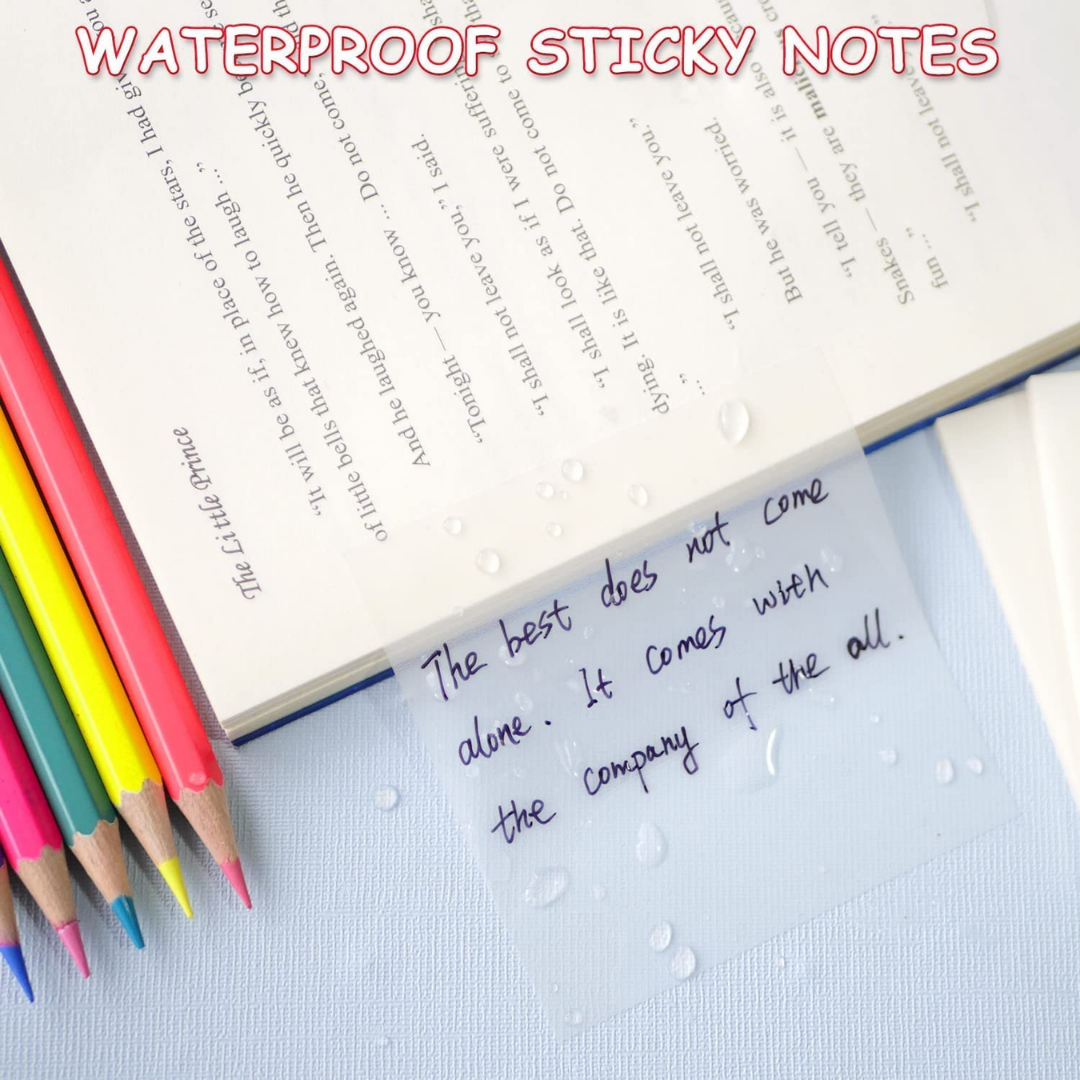 WATERPROOF STICKY NOTES
The Little Prince
"It will be as if, in place of the stars, I had
of little bells that knew how to laugh ..."
And he laughed again. Then he quickly
"Tonight — you know ... Do not come,
"I shall not leave you," I said.
"I shall look as if I were suffering
dying. It is like that. Do not come to
..."
"I shall not leave you."
But he was worried.
"I tell you — it is also
Snakes — they are
fun ..."
"I shall not leave
The best does not come
alone. It comes with
the company of the all.